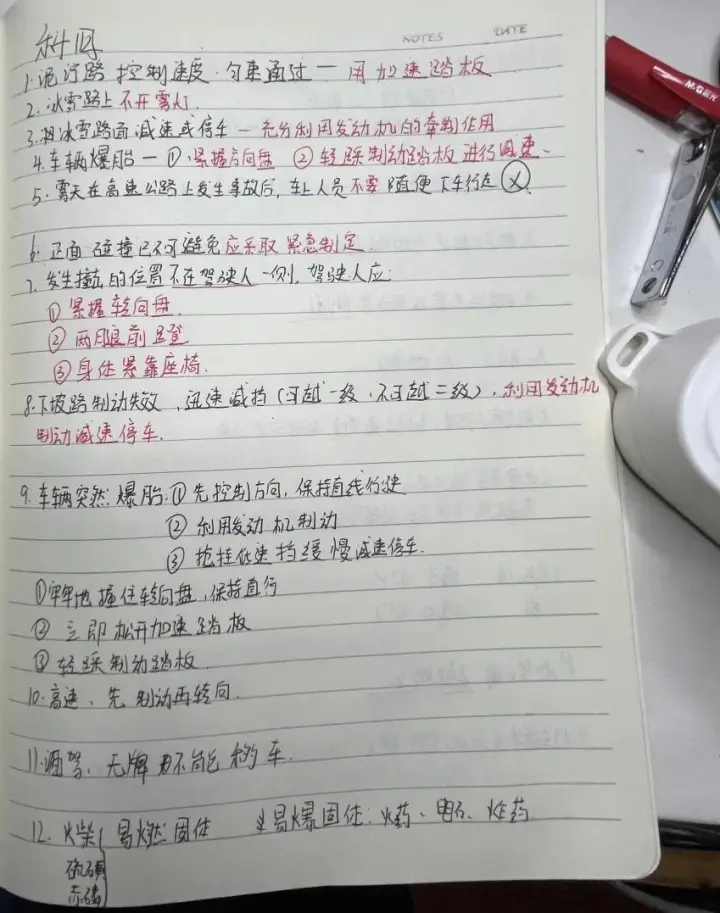 NOTES DATE
科四
1.泥泞路 控制速度.匀速通过一用加速踏板
2.冰雪路上不开雾灯.
3.冰雪路面减速或停车-充分利用发动机的牵制作用
4.车辆爆胎-①紧握方向盘 ②轻踩制动踏板进行减速、
5.雾天在高速公路上发生事故后,车上人员不要随便下车行走
6.正面碰撞已不可避免应采取紧急制定.
7.发生撞击的位置不在驾驶人一侧,驾驶人应:
①紧握转向盘.
②两腿前蹬
③身体紧靠座椅.
8.下坡路制动失效,迅速减挡(可越一级.不可越二级),利用发动机
制动减速停车.
9.车辆突然爆胎.①先控制方向,保持直线行驶
②利用发动机制动
③抢挂低速挡缓慢减速停车.
①牢牢地握住转向盘,保持直行
②立即松开加速踏板
③轻踩制动踏板.
10.高速、先制动再转向.
11.酒驾、无牌都不能移车.
12.火柴 易燃固体 易爆固体:火药、电石、炸药.
硫磺
赤磷
M&G晨光